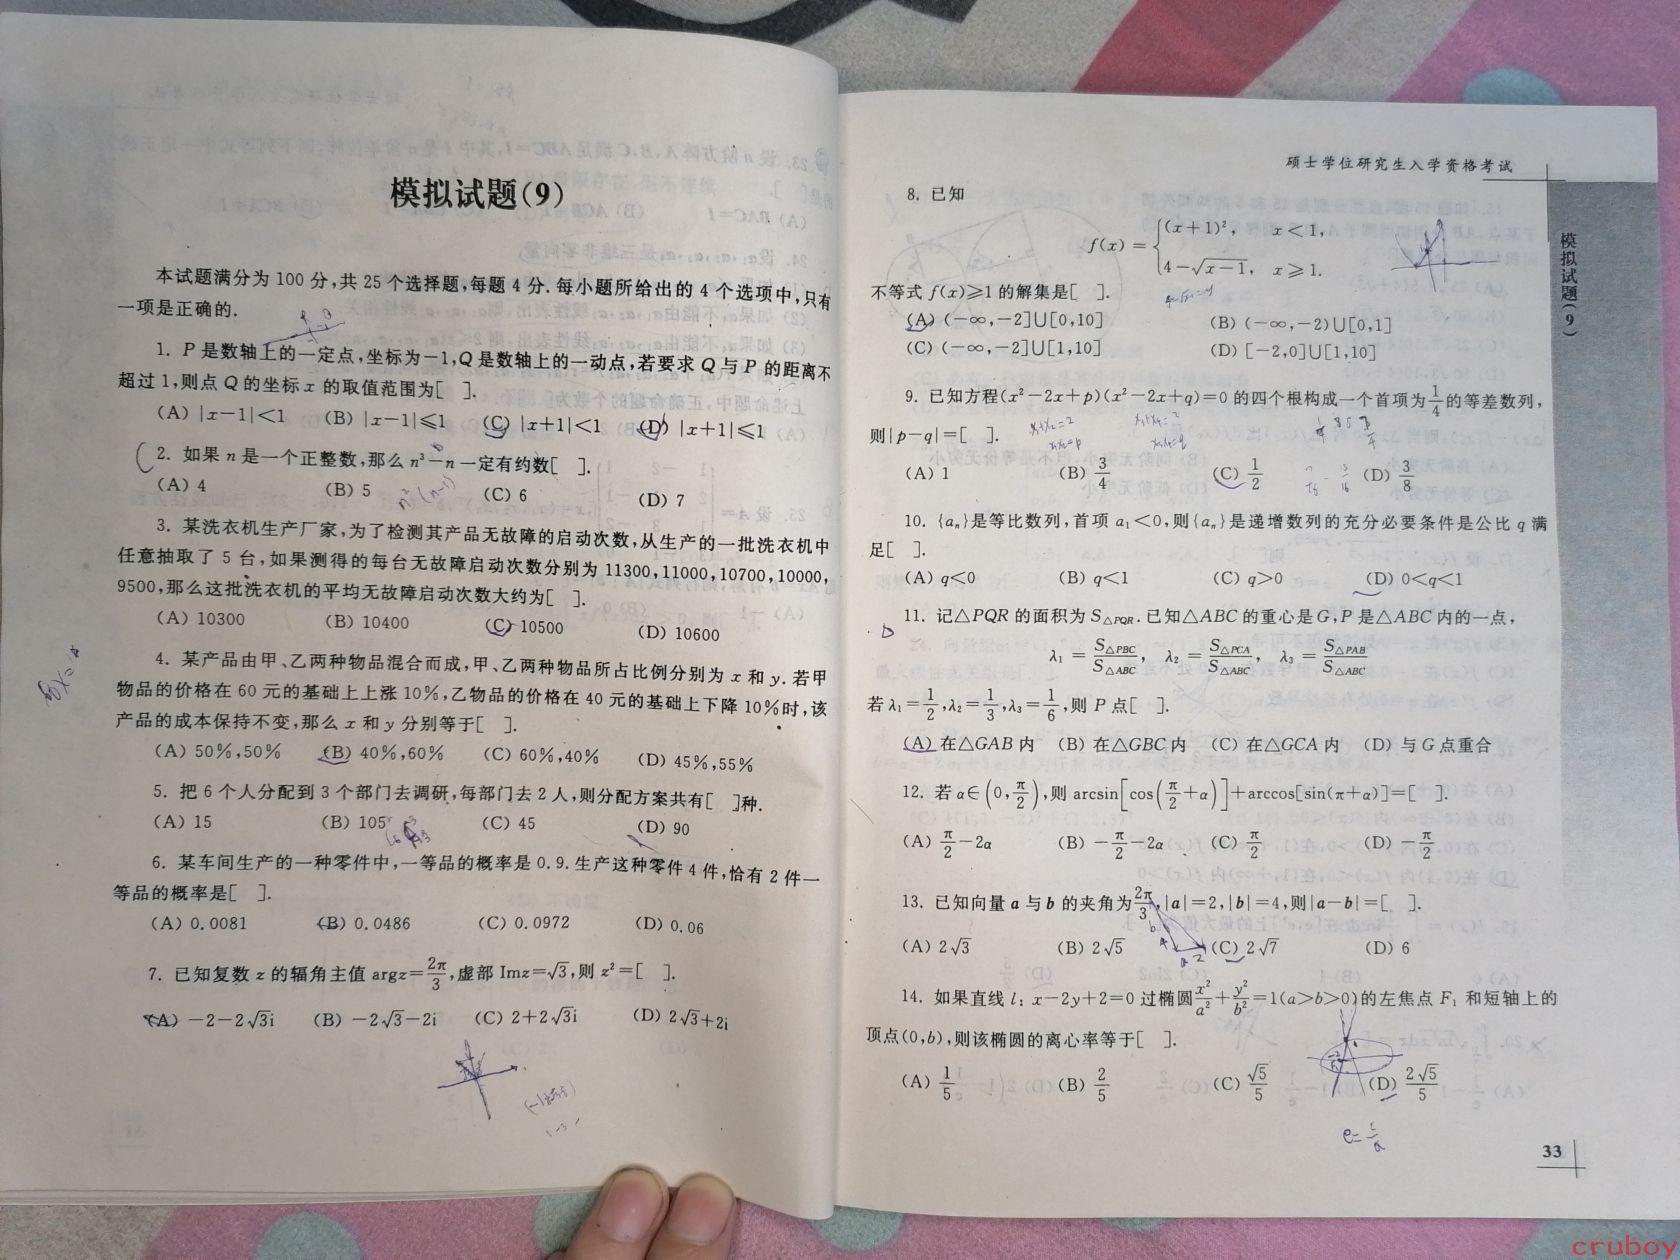 模拟试题(9)
本试题满分为 100 分,共 25 个选择题,每题 4 分.每小题所给出的 4 个选项中,只有
一项是正确的.
1. P 是数轴上的一定点,坐标为-1,Q 是数轴上的一动点,若要求 Q 与 P 的距离不
超过 1,则点 Q 的坐标 x 的取值范围为[ ].
(A) |x-1|<1 (B) |x-1|≤1 (C) |x+1|<1 (D) |x+1|≤1
2. 如果 n 是一个正整数,那么 n³-n 一定有约数[ ].
(A) 4 (B) 5 (C) 6 (D) 7
3. 某洗衣机生产厂家,为了检测其产品无故障的启动次数,从生产的一批洗衣机中
任意抽取了 5 台,如果测得的每台无故障启动次数分别为 11300,11000,10700,10000,
9500,那么这批洗衣机的平均无故障启动次数大约为[ ].
(A) 10300 (B) 10400 (C) 10500 (D) 10600
4. 某产品由甲、乙两种物品混合而成,甲、乙两种物品所占比例分别为 x 和 y. 若甲
物品的价格在 60 元的基础上上涨 10%,乙物品的价格在 40 元的基础上下降 10%时,该
产品的成本保持不变,那么 x 和 y 分别等于[ ].
(A) 50%,50% (B) 40%,60% (C) 60%,40% (D) 45%,55%
5. 把 6 个人分配到 3 个部门去调研,每部门去 2 人,则分配方案共有[ ]种.
(A) 15 (B) 105 (C) 45 (D) 90
6. 某车间生产的一种零件中,一等品的概率是 0.9. 生产这种零件 4 件,恰有 2 件一
等品的概率是[ ].
(A) 0.0081 (B) 0.0486 (C) 0.0972 (D) 0.06
7. 已知复数 z 的辐角主值 argz=2π/3,虚部 Imz=√3,则 z²=[ ].
(A) -2-2√3i (B) -2√3-2i (C) 2+2√3i (D) 2√3+2i
硕士学位研究生入学资格考试
模拟试题(9)
8. 已知
f(x)={(x+1)², x<1,
4-√(x-1), x≥1.
不等式 f(x)≥1 的解集是[ ].
(A) (-∞,-2]∪[0,10] (B) (-∞,-2)∪[0,1]
(C) (-∞,-2]∪[1,10] (D) [-2,0]∪[1,10]
9. 已知方程(x²-2x+p)(x²-2x+q)=0 的四个根构成一个首项为1/4的等差数列,
则|p-q|=[ ].
x₁+x₂=2
x₁x₂=p
(A) 1 (B) 3/4 (C) 1/2 (D) 3/8
10. {aₙ}是等比数列,首项 a₁<0,则{aₙ}是递增数列的充分必要条件是公比 q 满
足[ ].
(A) q<0 (B) q<1 (C) q>0 (D) 0<q<1
11. 记△PQR 的面积为 S△PQR. 已知△ABC 的重心是 G,P 是△ABC 内的一点,
D
λ₁=S△PBC/S△ABC, λ₂=S△PCA/S△ABC, λ₃=S△PAB/S△ABC
若 λ₁=1/2,λ₂=1/3,λ₃=1/6,则 P 点[ ].
(A) 在△GAB 内 (B) 在△GBC 内 (C) 在△GCA 内 (D) 与 G 点重合
12. 若 α∈(0,π/2),则 arcsin[cos(π/2+α)]+arccos[sin(π+α)]=[ ].
(A) π/2-2α (B) -π/2-2α (C) π/2 (D) -π/2
13. 已知向量 a 与 b 的夹角为2π/3,|a|=2,|b|=4,则|a-b|=[ ].
(A) 2√3 (B) 2√5 (C) 2√7 (D) 6
14. 如果直线 l: x-2y+2=0 过椭圆x²/a²+y²/b²=1(a>b>0)的左焦点 F₁ 和短轴上的
顶点(0,b),则该椭圆的离心率等于[ ].
(A) 1/5 (B) 2/5 (C) √5/5 (D) 2√5/5
e=c/a
33
cruboy